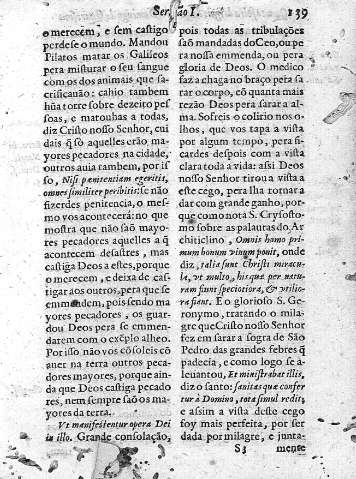 Sermão I. 139
o merecem, e sem castigo
perdese o mundo. Mandou
Pilatos matar os Galileos
pera misturar o seu sangue
com os dos animais que sa-
crificauão: cahio tambem
hũa torre sobre dezoito pes
soas, e matouhas a todas,
diz Cristo nosso Senhor, cui
dais q̃ só aquelles erão ma-
yores pecadores na cidade,
outros auia tambem, por is-
so, Nisi pœnitentiam egeritis,
omnes similiter peribitis: se não
fizerdes penitencia, o mes-
mo vos acontecerá: no que
mostra que não saõ mayo-
res pecadores aquelles a q̃
acontecem desastres, mas
castiga Deos a elles, porque
o merecem, e deixa de cas-
tigar aos outros, pera que se
emmendem, pois sendo ma
yores pecadores, os guar-
dou Deos pera se emmen-
darem com o exẽplo alheo.
Por isso não vos cõsoleis cõ
auer na terra outros peca-
dores mayores, porque ain-
da que Deos castiga pecado
res, nem sempre saõ os ma-
yores da terra.
Vt manifestentur opera Dei
in illo. Grande consolação,
pois todas as tribulações
saõ mandadas do Ceo, ou pe
ra nossa emmenda, ou pera
gloria de Deos. O medico
faz a chaga no braço pera sa
rar o corpo, cõ quanta mais
rezão Deos pera sarar a al-
ma. Sofreis o colirio nos o-
lhos, que vos tapa a vista
por algum tempo, pera fi-
cardes despois com a vista
clara toda a vida: assi Deos
nosso Senhor tirou a vista a
este cego, pera lha tornar a
dar com grande ganho, por-
que como nota S. Crysosto-
mo sobre as palauras do Ar
chiticlino, Omnis homo pri-
mum bonum vinum ponit, onde
diz, talia sunt Christi miracu-
la, vt multo, his quæ per natu-
ram sunt speciosiora, & vtilio-
ra fiant. E o glorioso S. Ge-
ronymo, tratando o mila-
gre que Cristo nosso Senhor
fez em sarar a sogra de São
Pedro das grandes febres q̃
padecia, e como logo se a-
leuantou, Et ministrabat illis,
diz o santo: sanitas quæ confer
tur à Domino, tota simul redit,
e assim a vista deste cego
foy mais perfeita, por ser
dada por milagre, e junta-
S3 mente